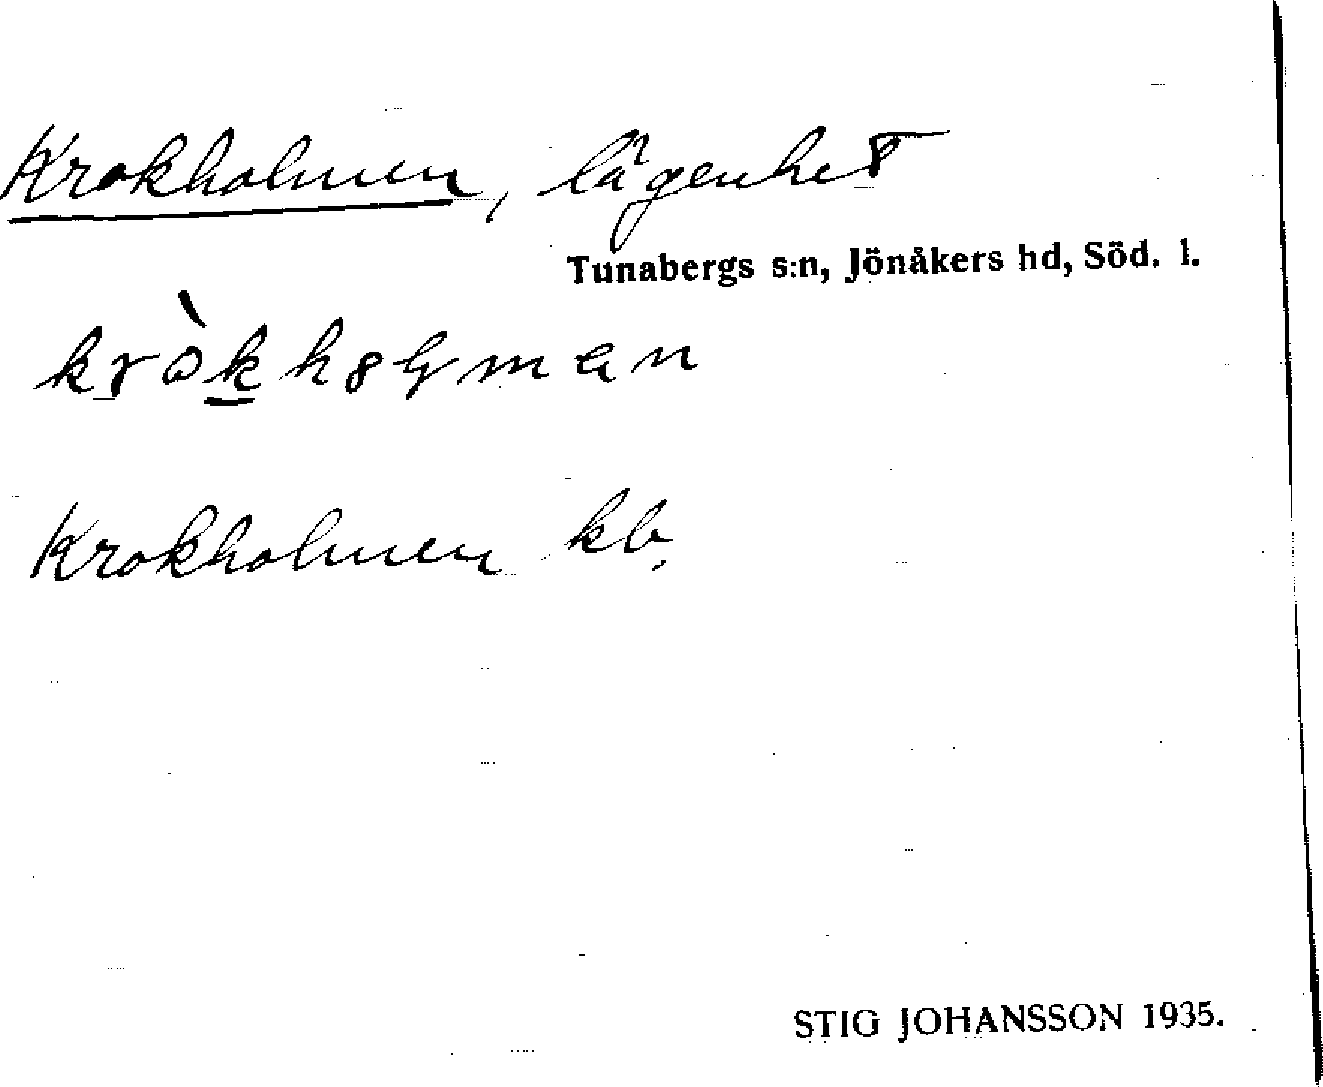 Krokholmen, lägenhet
Tunabergs s:n, Jönåkers hd, Söd. l.
Krokholmen kb.
STIG JOHANSSON 1935.